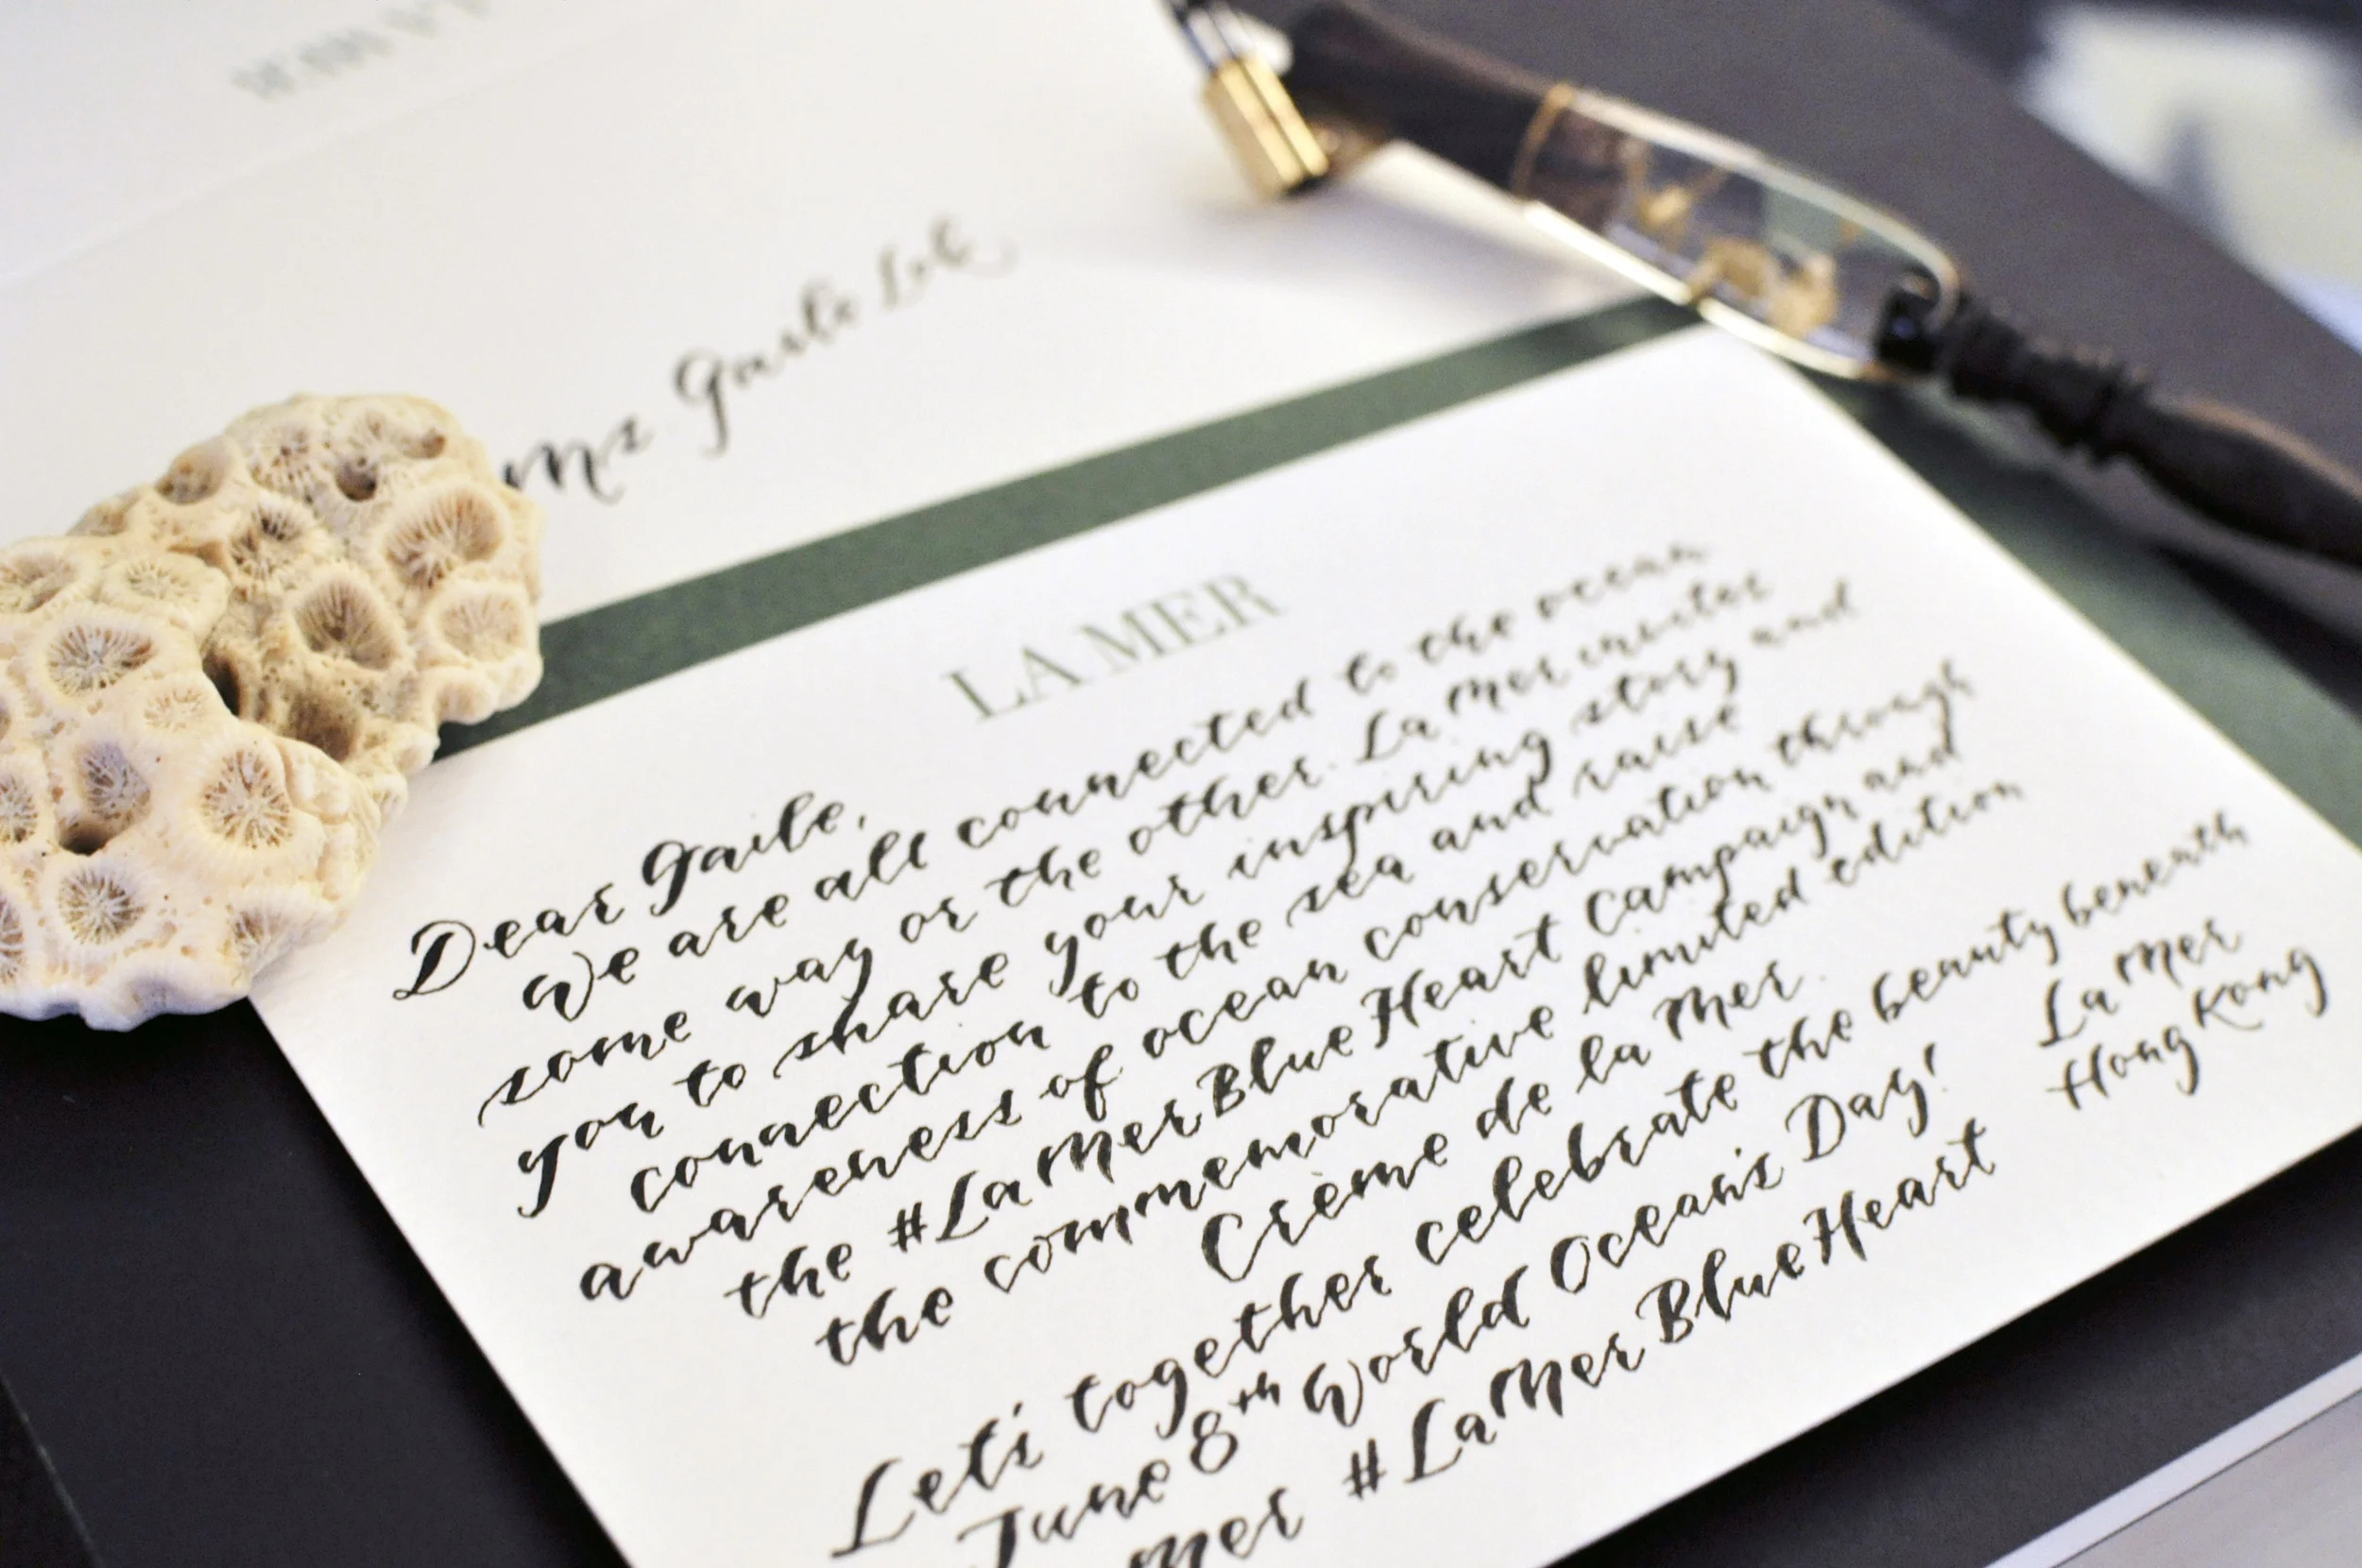 Ms. Gaile Lok
LA MER
Dear Gaile,
We are all connected to the ocean
some way or the other. La Mer invites
you to share your inspiring story and
connection to the sea and raise
awareness of ocean conservation through
the #LaMerBlueHeart campaign and
the commemorative limited edition
Crème de la Mer.
Let's together celebrate the beauty beneath
June 8th World Ocean's Day!
mer #LaMerBlueHeart
La Mer
Hong Kong